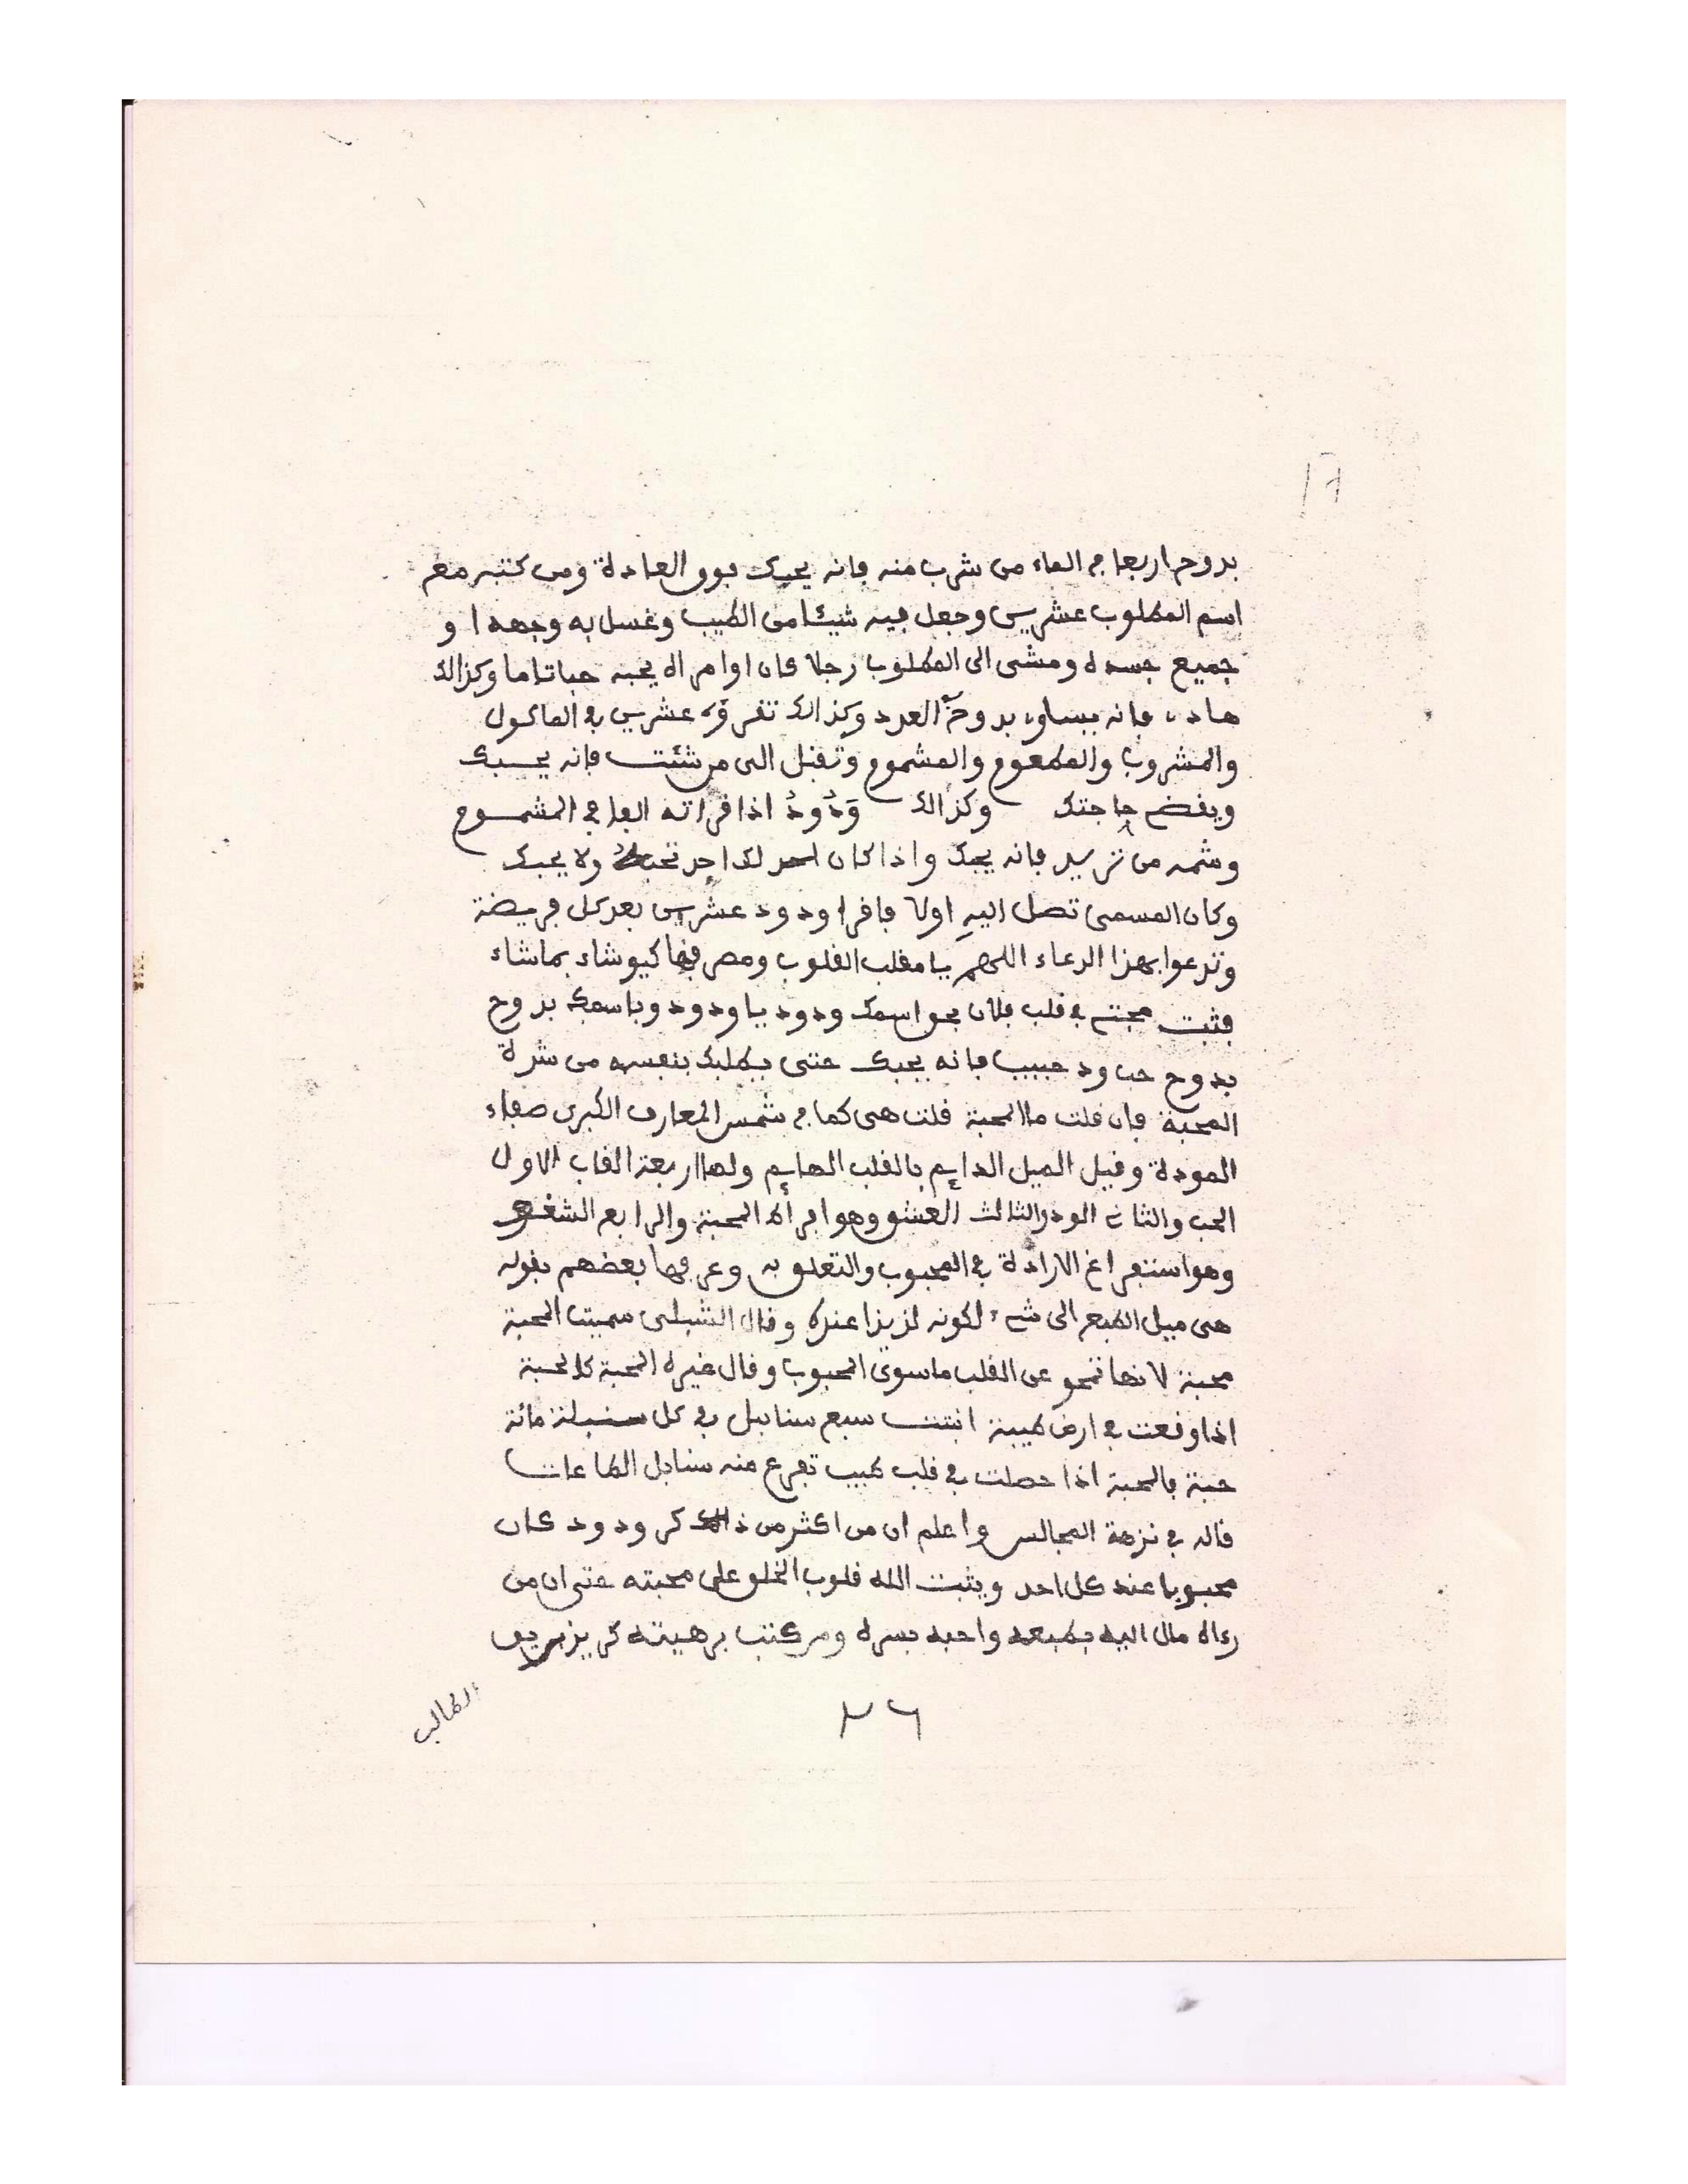 بدوح اربعا في الماء من شرب منه فانه يحبك فوق العادة ومن كتبه مع
اسم المطلوب عشرين وجعل فيه شيئا من الطيب وغسل به وجهه او
جميع جسده ومشى الى المطلوب رجلا كان او امراة يحبه حبا تاما وكذالك
هاد فانه يساوى بدوح العدد وكذالك تقرؤه عشرين في الماكول
والمشروب والمطعوم والمشموم وتقبل الى من شئت فانه يحبك
ويقضي حاجتك وكذالك وَدُودُ اذا قراته الفا في المشموم
وشمه من تريد فانه يحبك واذا كان لك احد تحبه ولا يحبك
وكان المسمى تصل اليه اولا فاقرا ودود عشرين بعد كل فريضة
وتدعوا بهذا الدعاء اللهم يا مقلب القلوب ومصرفها كيف شاء بما شاء
فثبت محبتي في قلب فلان بحق اسمك ودود يا ودود وباسمك بدوح
بدوح حب ود حبيب فانه يحبك حتى يطلبك بنفسه من شدة
المحبة فان قلت ما المحبة قلت هى كما في شمس المعارف الكبرى صفاء
المودة وقيل الميل الدايم بالقلب الهايم ولها اربعة القاب الاول
الحب والثاني الود والثالث العشق وهو افراط المحبة والرابع الشغف
وهو استفراغ الارادة في المحبوب والتعلق به وعرفها بعضهم بقوله
هى ميل الطبع الى شيء لكونه لذيذا عنده وقال الشبلى سميت المحبة
محبة لانها تمحو عن القلب ما سوى المحبوب وقال غيره المحبة كالحبة
اذا وقعت في ارض طيبة انبتت سبع سنابل في كل سنبلة مائة
حبة فالمحبة اذا حصلت في قلب طيب تفرع منه سنابل الطاعات
قاله في نزهة المجالس واعلم ان من اكثر من ذكر ودود كان
محبوبا عند كل احد ويثبت الله قلوب الخلق على محبته حتى ان من
رءاه مال اليه بطبعه واحبه بسره ومن كتب برهيته كرير
الطالب
٢٦